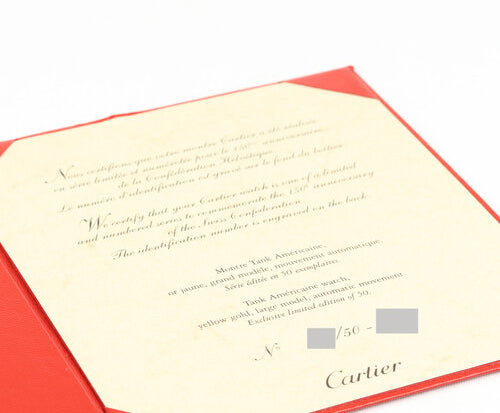 Nous certifions que votre montre Cartier a été réalisée
en série limitée et numérotée pour le 150ème anniversaire
de la Confédération Helvétique.
Le numéro d'identification est gravé sur le fond du boîtier
We certify that your Cartier watch is one of a limited
and numbered series to commemorate the 150th anniversary
of the Swiss Confederation
The identification number is engraved on the back.
Montre Tank Américaine,
or jaune, grand modèle, mouvement automatique
Série éditée en 50 exemplaires.
Tank Américaine watch,
yellow gold, large model, automatic movement
Exclusive limited edition of 50.
N° /50 -
Cartier